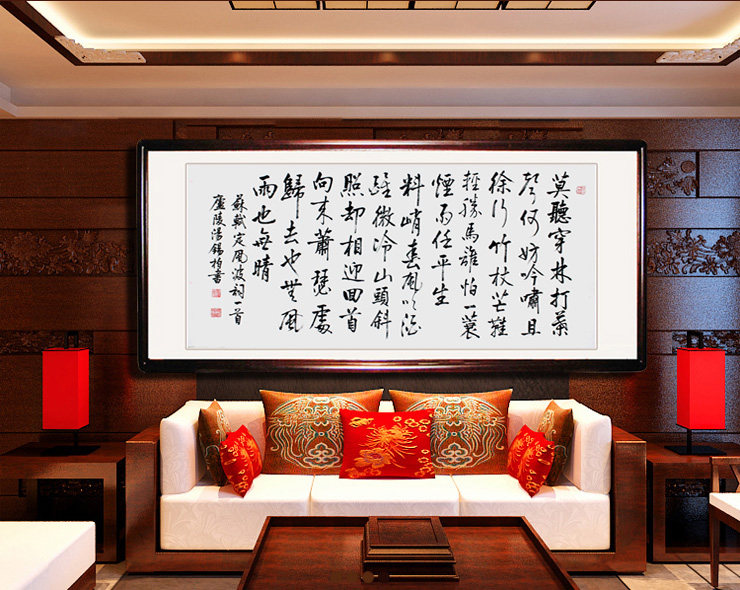 莫聽穿林打葉
聲何妨吟嘯且
徐行竹杖芒鞵
輕勝馬誰怕一蓑
煙雨任平生
料峭春風吹酒
醒微冷山頭斜
照却相迎回首
向來蕭瑟處
歸去也無風
雨也無晴
蘇軾定風波詞一首
廬陵湯錫柏書